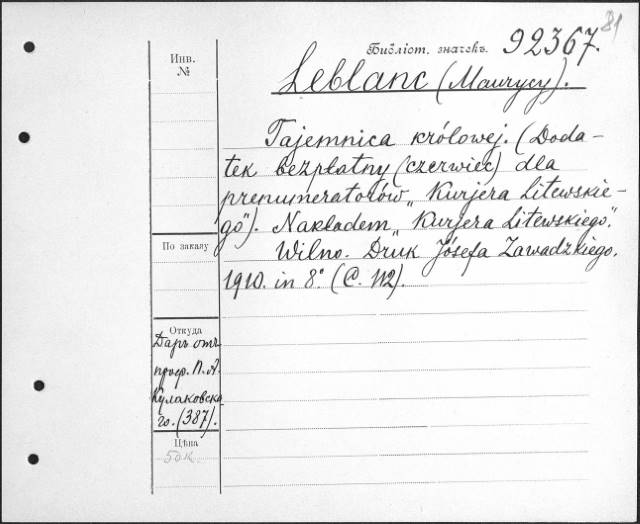 81
Библіот. значекъ. 92367.
Инв.
№
Leblanc (Maurycy).
Tajemnica królowej. (Doda-
tek bezpłatny (czerwiec) dla
prenumeratorów „Kurjera Litewskie-
go"). Nakładem „Kurjera Litewskiego".
По заказу
Wilno. Druk Józefa Zawadzkiego.
1910. in 8°. (C. 112).
Откуда
Даръ отъ
проф. П. А.
Кулаковска-
го. (387).
Цѣна
50 к.